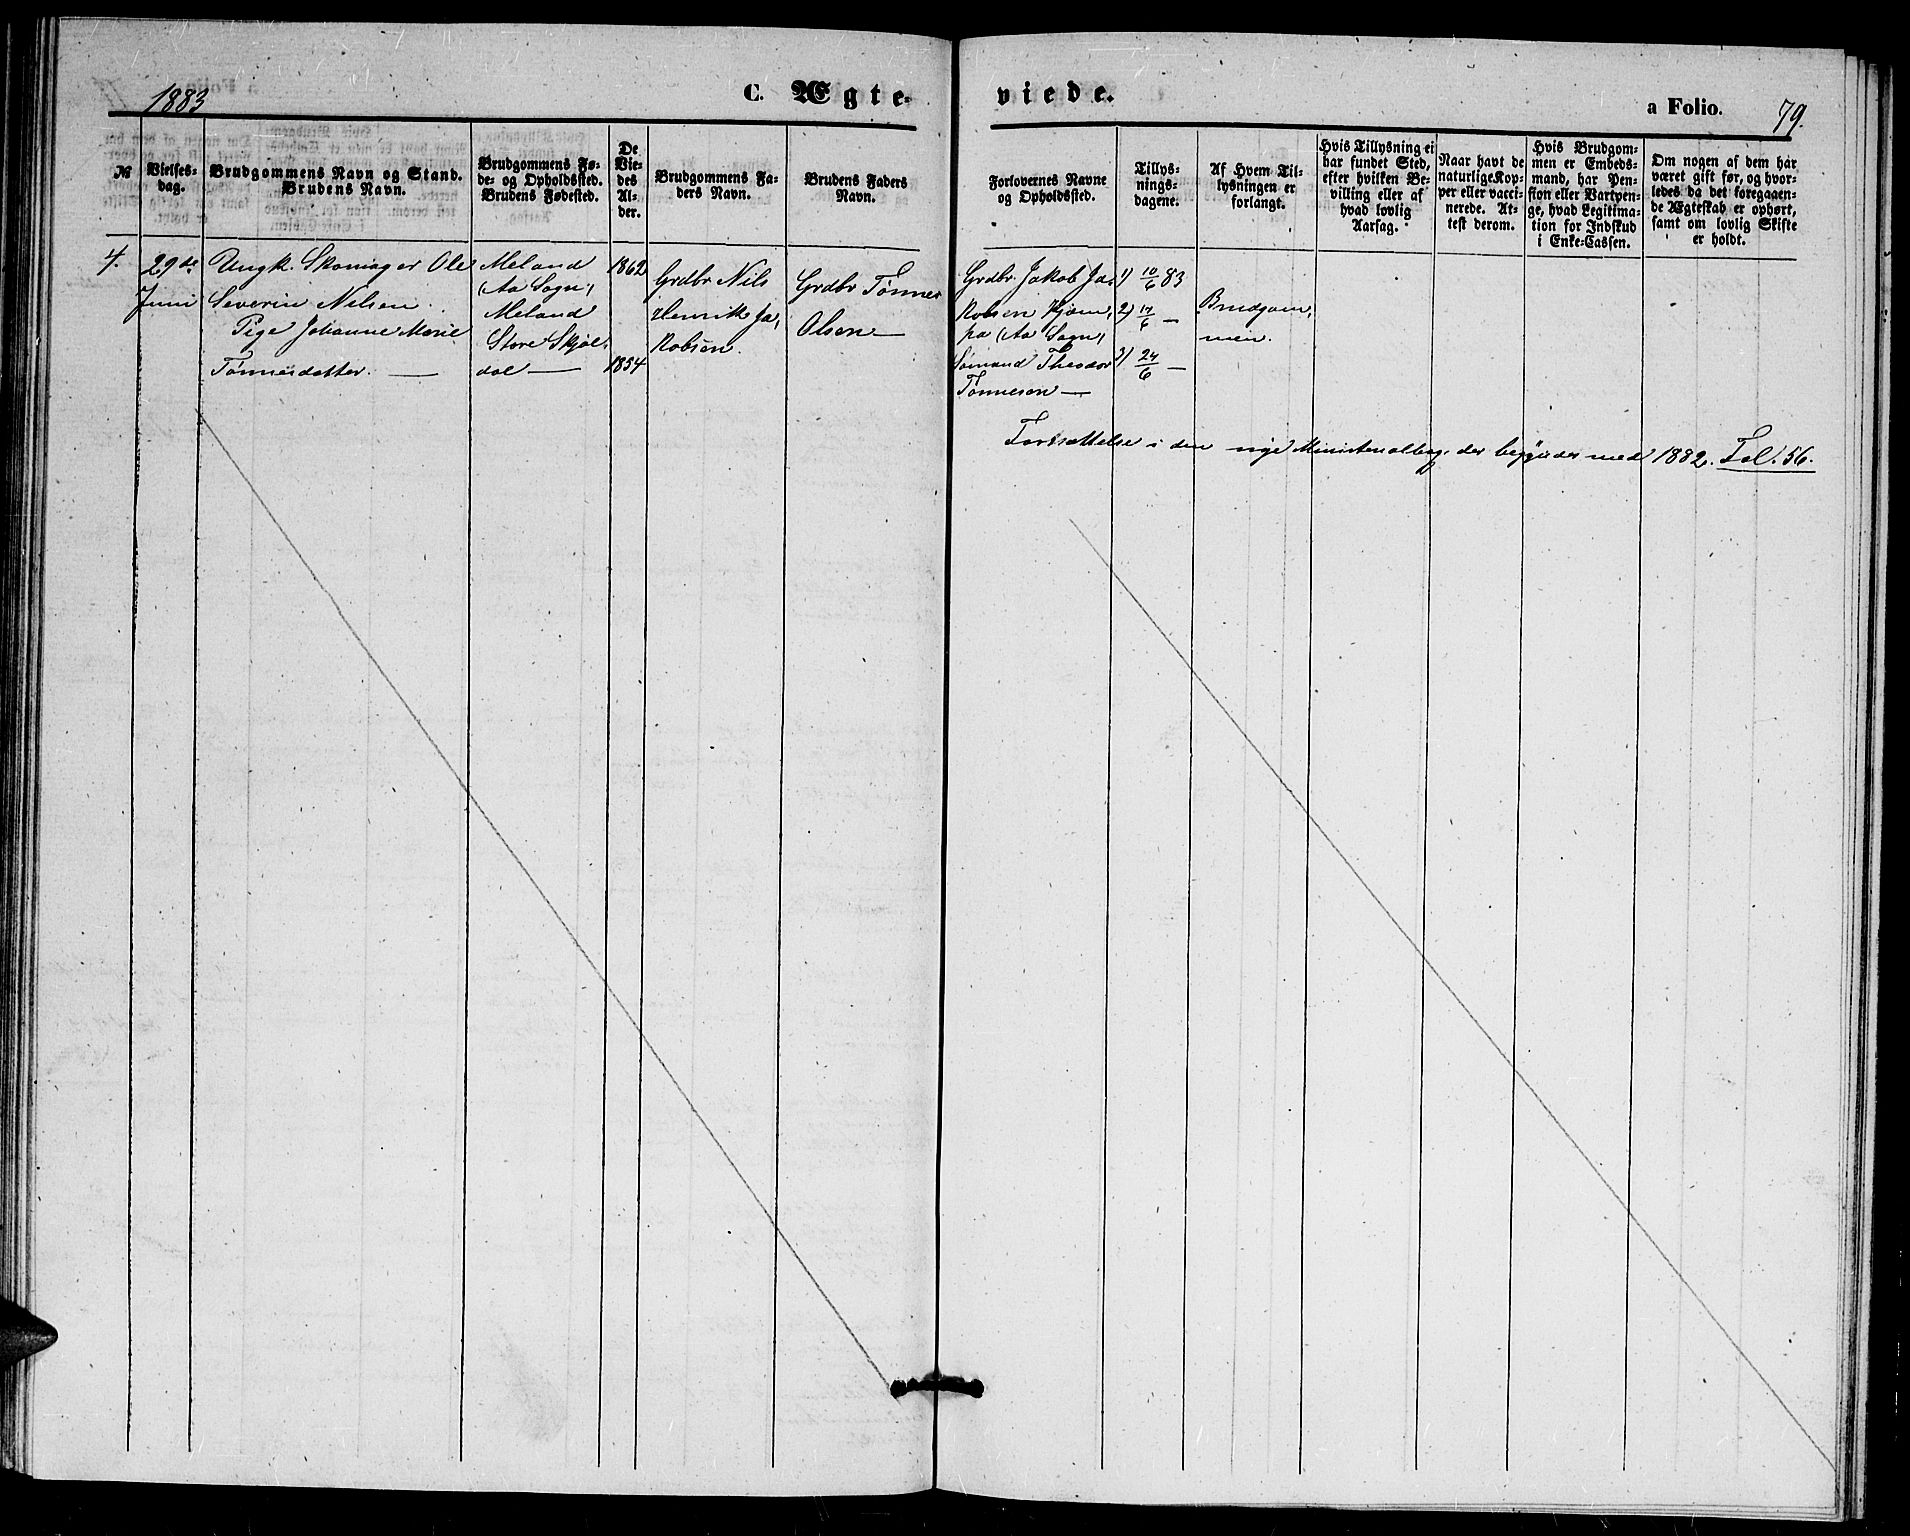 1883
C. Ægte-
viede.
a Folio. 79.
№
Vielses-
dag.
Brudgommens Navn og Stand.
Brudens Navn.
Brudgommens Fø-
de- og Opholdssted.
Brudens Fødested.
De
Vie-
des
Al-
der.
Brudgommens Fa-
ders Navn.
Brudens Faders
Navn.
Forlovernes Navne
og Opholdssted.
Tillys-
nings-
dagene.
Af Hvem Til-
lysningen er
forlangt.
Hvis Tillysning ei
har fundet Sted,
efter hvilken Be-
villing eller af
hvad lovlig
Aarsag.
Naar havt de
naturlige Kop-
per eller vacci-
nerede. At-
test derom.
Hvis Brudgom-
men er Embeds-
mand, har Pen-
sion eller Vartpen-
ge, hvad Legitima-
tion for Indskud
i Enke-Cassen.
Om nogen af dem har
været gift før, og hvor-
ledes da det foregaaen-
de Ægteskab er ophørt,
samt om lovlig Skifte
er holdt.
4.
29de
Juni
Ungk. Skomager Ole
Severin Nilsen.
Pige Johanne Marie
Tønnesdatter. —
Meland
(Aa Sogn)
Meland
Store Skjøl-
dal —
1862
1854
Grdbr Nils
Henrik Ja-
kobsen.
Grdbr Tønnes
Olsen —
Grdbr. Jakob Ja-
kobsen
pa (Aa Sogn)
Sømand Theodor
Tønnesen —
1) 10/6 83
2) 17/6 —
3) 24/6 —
Brudgom-
men.
Fortsættelse i den nye Ministerialbog, der begynder med 1882. Fol. 56.